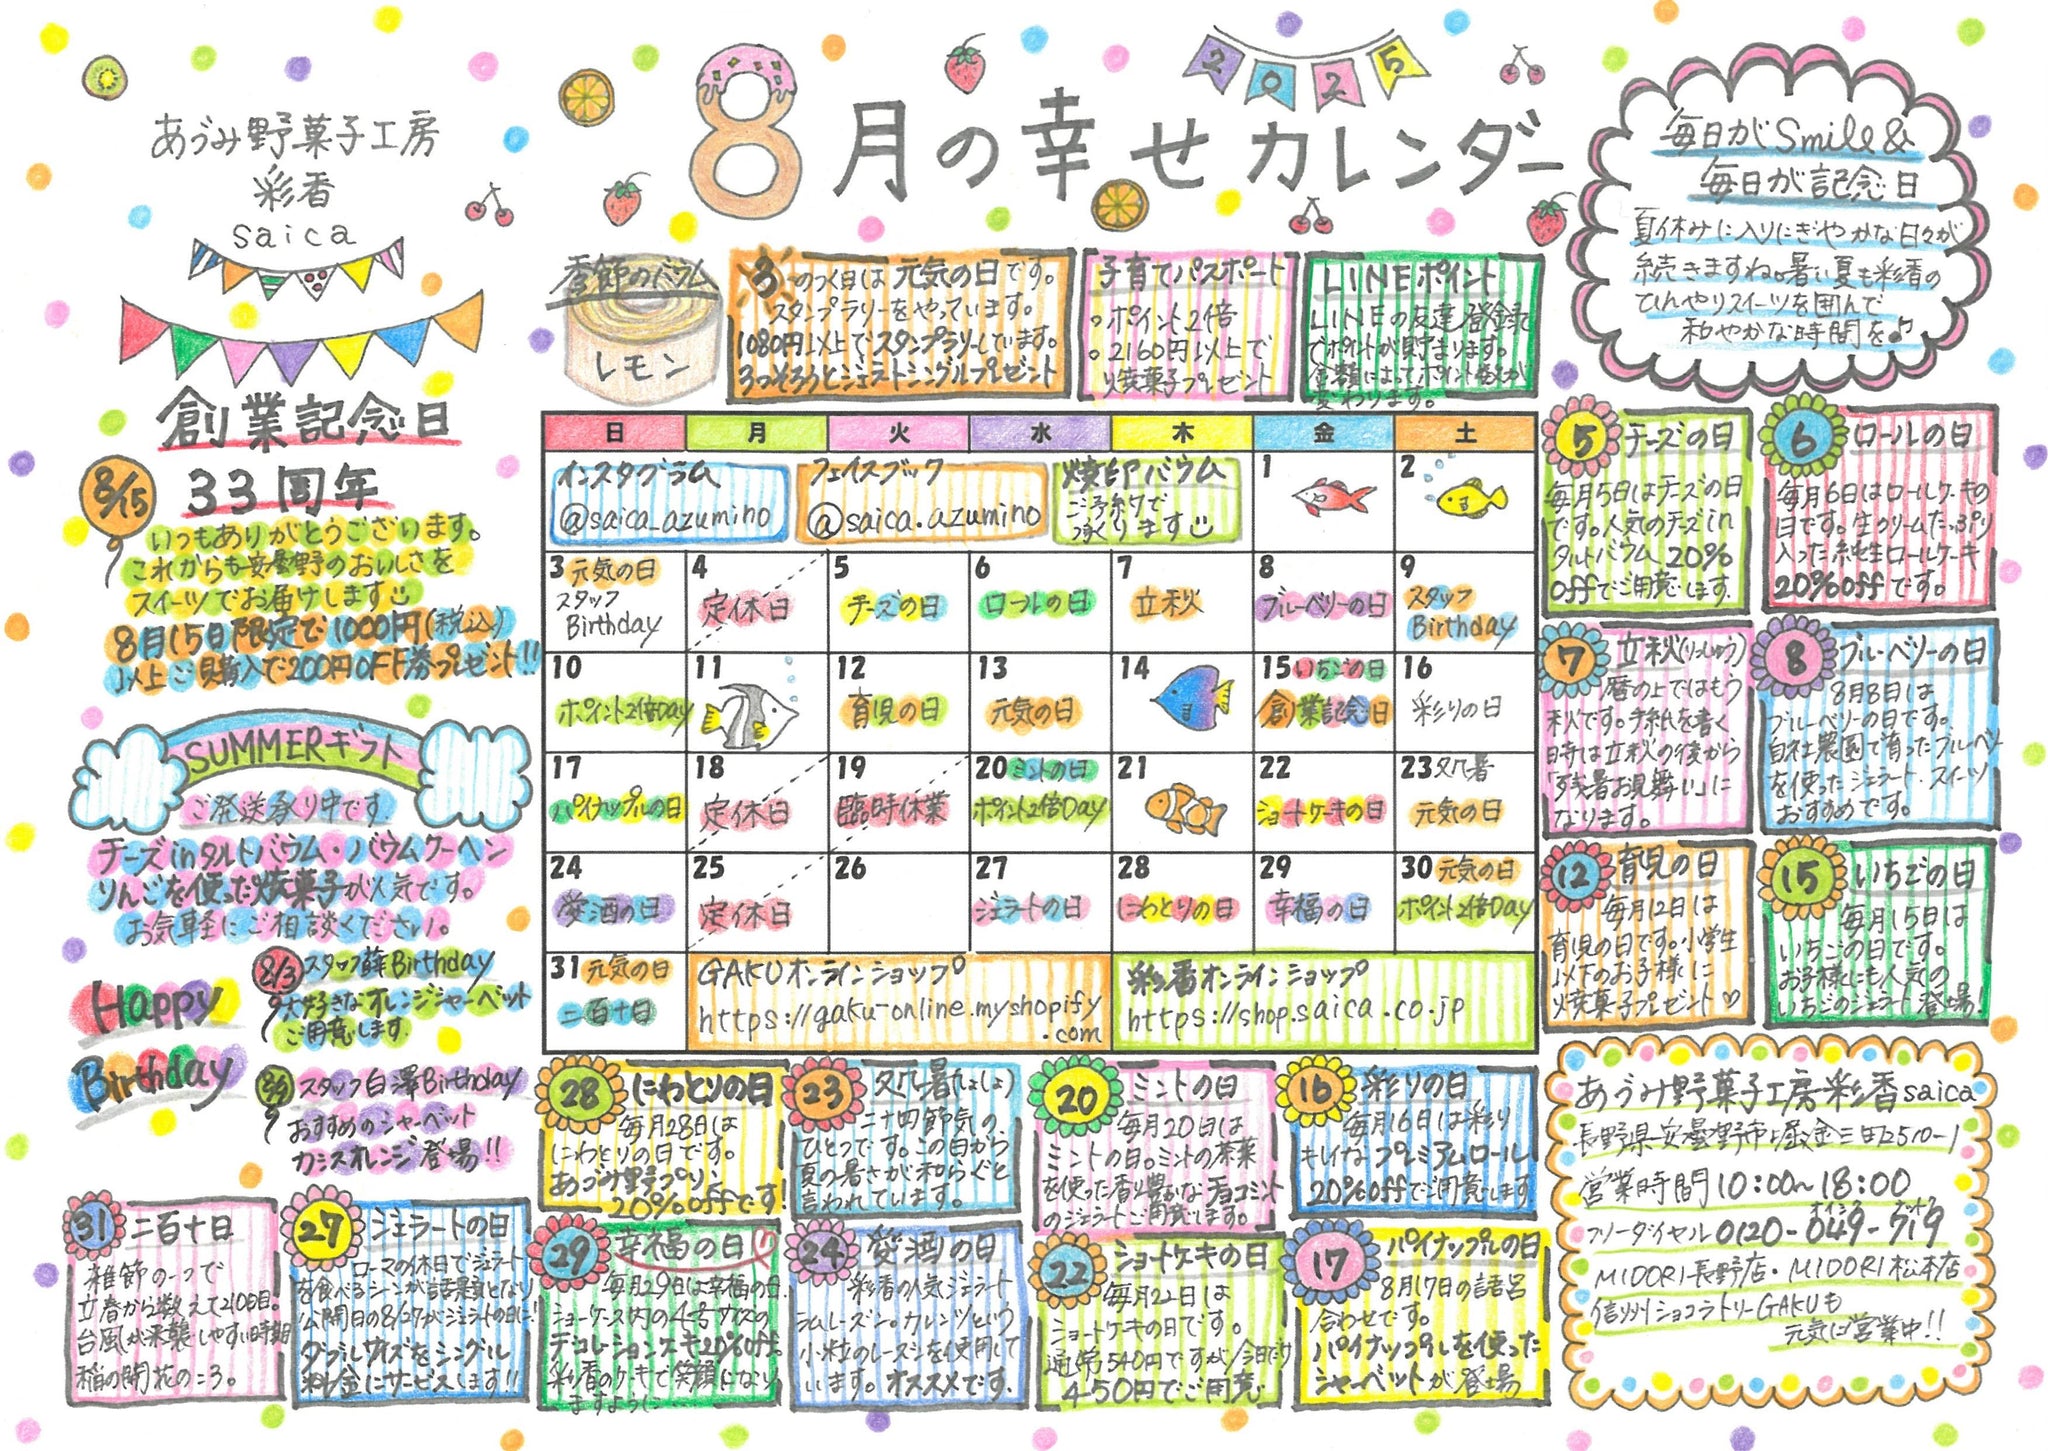 あづみ野菓子工房
彩香
saica
8月の幸せカレンダー
2025
毎日がSmile&
毎日が記念日
夏休みに入りにぎやかな日々が
続きますね。暑い夏も彩香の
ひんやりスイーツを囲んで
和やかな時間を♪
季節のバウム
レモン
3のつく日は元気の日です。
スタンプラリーをやっています。
1080円以上でスタンプラリーしています。
3つそろうとジェラートシングルプレゼント
子育てパスポート
。ポイント2倍
。2160円以上で
焼菓子プレゼント
LINEポイント
LINEの友達登録で
ポイントが貯まります。
金額によってポイント数が
変わります。
創業記念日
8/15
33周年
いつもありがとうございます。
これからも安曇野のおいしさを
スイーツでお届けします
8月15日限定で1000円(税込)
以上ご購入で200円OFF券プレゼント!!
SUMMERギフト
ご発送承り中です。
チーズinタルトバウム・バウムクーヘン
りんごを使った焼菓子が人気です。
お気軽にご相談ください。
Happy
Birthday
8/3 スタッフ薛Birthday
大好きなオレンジシャーベット
ご用意します。
8/9 スタッフ白澤Birthday
おすすめのシャーベット
カシスオレンジ登場!!
日 月 火 水 木 金 土
インスタグラム
@saica_azumino
フェイスブック
@saica.azumino
焼印バウム
ご予約で
承ります
1 2
3 元気の日
スタッフ
Birthday
4 定休日
5 チーズの日
6 ロールの日
7 立秋
8 ブルーベリーの日
9 スタッフ
Birthday
10 ポイント2倍Day
11
12 育児の日
13 元気の日
14
15 いちごの日
創業記念日
16 彩りの日
17 パイナップルの日
18 定休日
19 臨時休業
20 ミントの日
ポイント2倍Day
21
22 ショートケーキの日
23 処暑
元気の日
24 愛酒の日
25 定休日
26
27 ジェラートの日
28 にわとりの日
29 幸福の日
30 元気の日
ポイント2倍Day
31 元気の日
二百十日
GAKUオンラインショップ
https://gaku-online.myshopify
.com
彩香オンラインショップ
https://shop.saica.co.jp
5 チーズの日
毎月5日はチーズの日
です。人気のチーズin
タルトバウム 20%
offでご用意します。
6 ロールの日
毎月6日はロールケーキの
日です。生クリームたっぷり
入った純生ロールケーキ
20%offです。
7 立秋(りっしゅう)
暦の上ではもう
秋です。手紙を書く
時は立秋の後から
「残暑お見舞い」に
なります。
8 ブルーベリーの日
8月8日は
ブルーベリーの日です。
自社農園で育ったブルーベリー
を使ったジェラート・スイーツ
おすすめです。
12 育児の日
毎月12日は
育児の日です。小学生
以下のお子様に
焼菓子プレゼント♡
15 いちごの日
毎月15日は
いちごの日です。
お子様にも人気の
いちごのジェラート登場!
28 にわとりの日
毎月28日は
にわとりの日です。
あづみ野プリン
20%offです!
23 処暑(しょしょ)
二十四節気の、
ひとつです。この日から
夏の暑さが和らぐと
言われています。
20 ミントの日
毎月20日は
ミントの日。ミントの葉
を使った香り豊かなチョコミント
のジェラートご用意します。
16 彩りの日
毎月16日は彩り
キレイなプレミアムロール
20%offでご用意します
31 二百十日
雑節の一つで
立春から数えて210日。
台風が来襲しやすい時期
稲の開花のころ。
27 ジェラートの日
ローマの休日でジェラート
を食べるシーンが話題となり
公開日の8/27がジェラートの日に!
ダブルサイズをシングル
料金にサービスします!!
29 幸福の日
毎月29日は幸福の日。
ショーケース内の4号サイズの
デコレーションケーキ20%off。
彩香のケーキで笑顔になり
ますように
24 愛酒の日
彩香の人気ジェラート
ラムレーズン。カレンツという
小粒のレーズンを使用して
います。オススメです。
22 ショートケーキの日
毎月22日は
ショートケーキの日です。
通常540円ですが今日だけ
450円でご用意
17 パイナップルの日
8月17日の語呂
合わせです。
パイナップルを使った
シャーベットが登場
あづみ野菓子工房彩香saica
長野県安曇野市堀金三田2510-1
営業時間10:00~18:00
フリーダイヤル0120-049-719
MIDORI長野店・MIDORI松本店
信州ショコラトリーGAKUも
元気に営業中!!